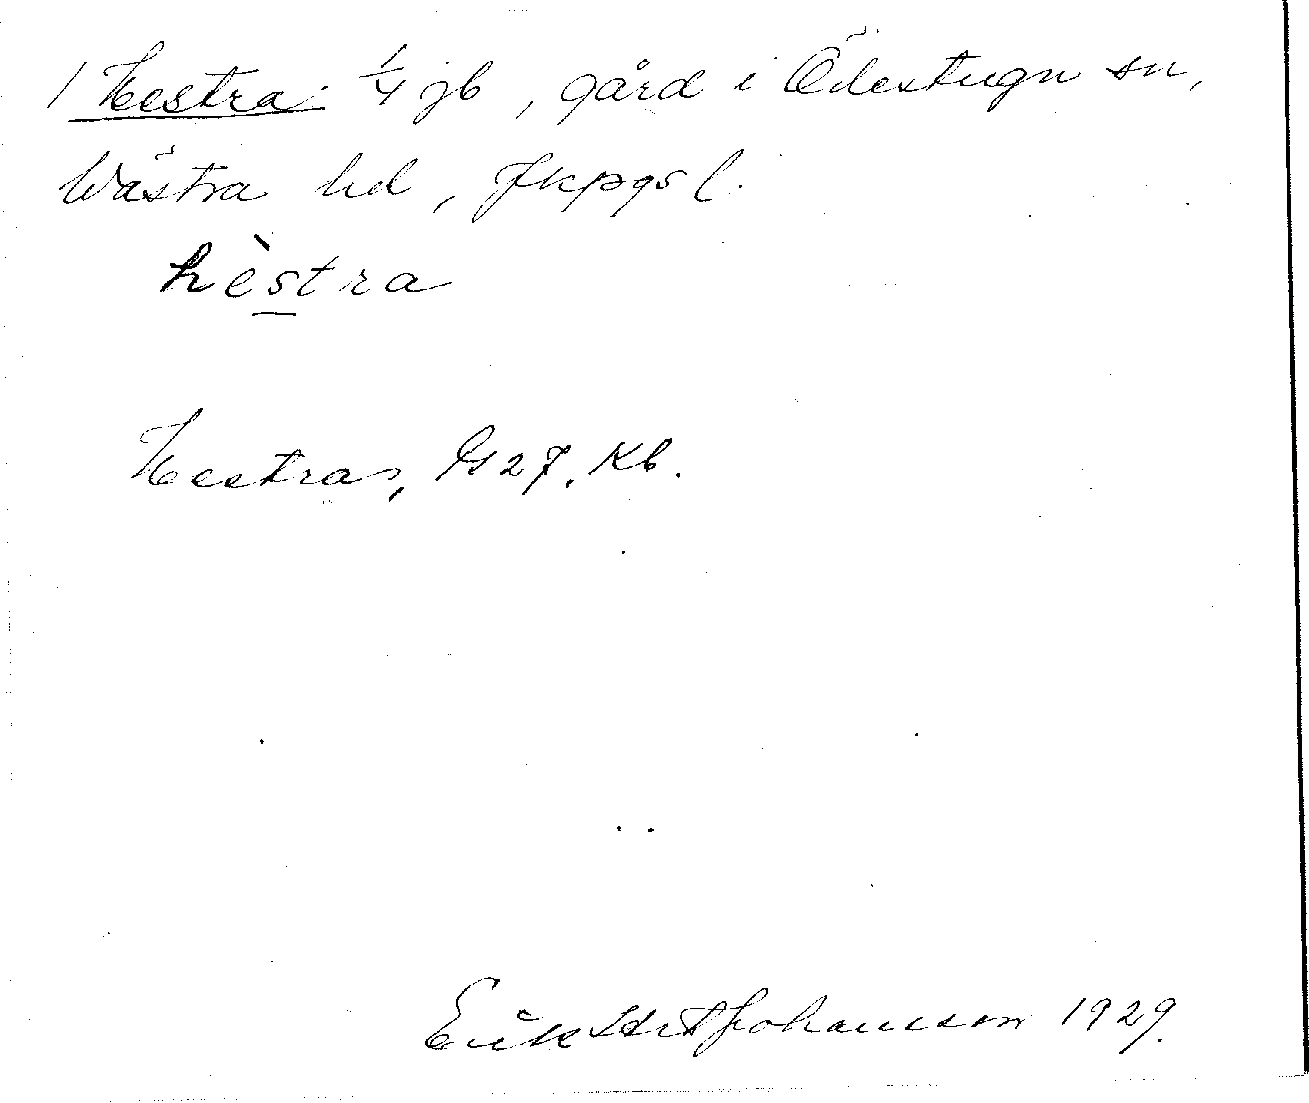 1 Hestra 1/4 jb, gård i Ödestugu sn,
Västra hd, Jkpgs l.
hèstra
Hestra, G 27. Kb.
Erik Johansson 1929.